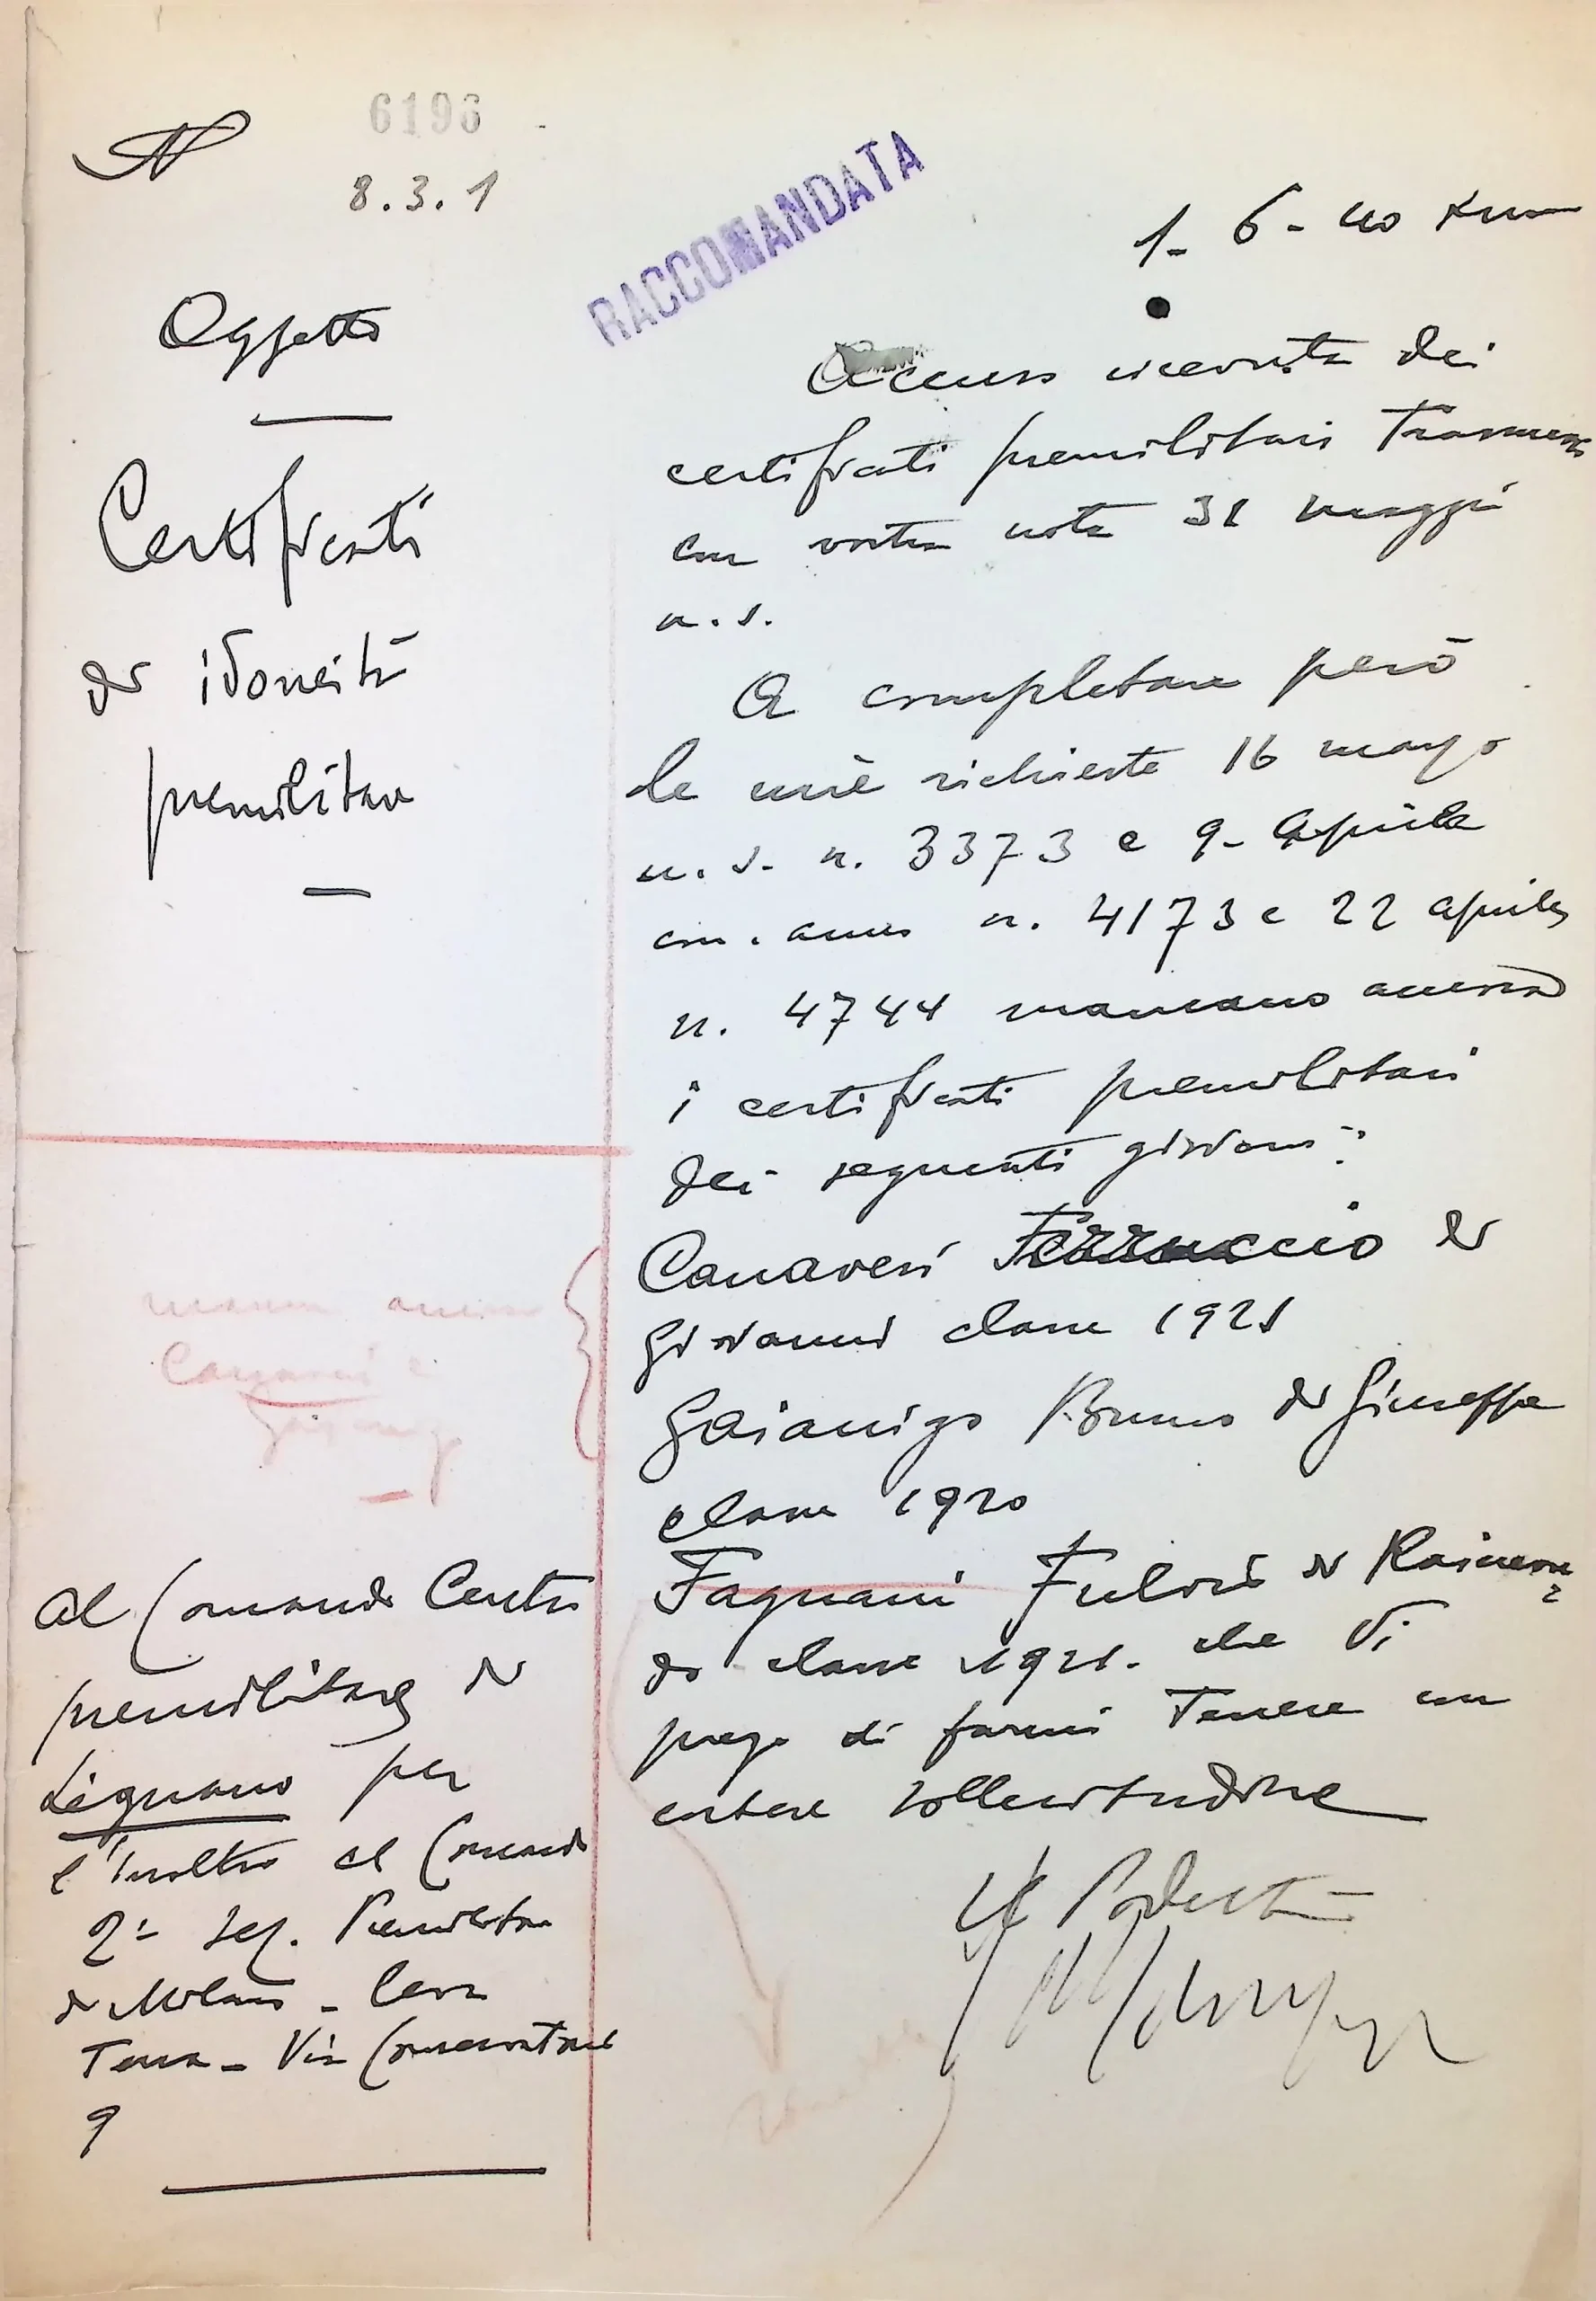 N
6196
8.3.1
RACCOMANDATA
1- 6- 40 XVIII
Oggetto
Certificati
di idoneità
premilitare
Accuso ricevuta dei
certificati premilitari trasmessi
con vostra nota 31 maggio
u.s.
A completare però
le mie richieste 16 marzo
u.s. n. 3373 e 9- Aprile
corr. anno n. 4173 e 22 aprile
n. 4744 mancano ancora
i certificati premilitari
dei seguenti giovani:
Canavesi Ferruccio di
Giovanni classe 1921
Gaianigo Bruno di Giuseppe
classe 1920
Fagnani Fulvio di Raimon
do classe 1921. che Vi
prego di farmi tenere con
cortese sollecitudine
Il Podestà
manca ancora
Canavesi e
Gaianigo
Al Comando Centro
premilitare di
Legnano per
l'inoltro al Comando
2ª Leg. Premilitare
di Milano - Leva
Terra - Via Conservatorio
9